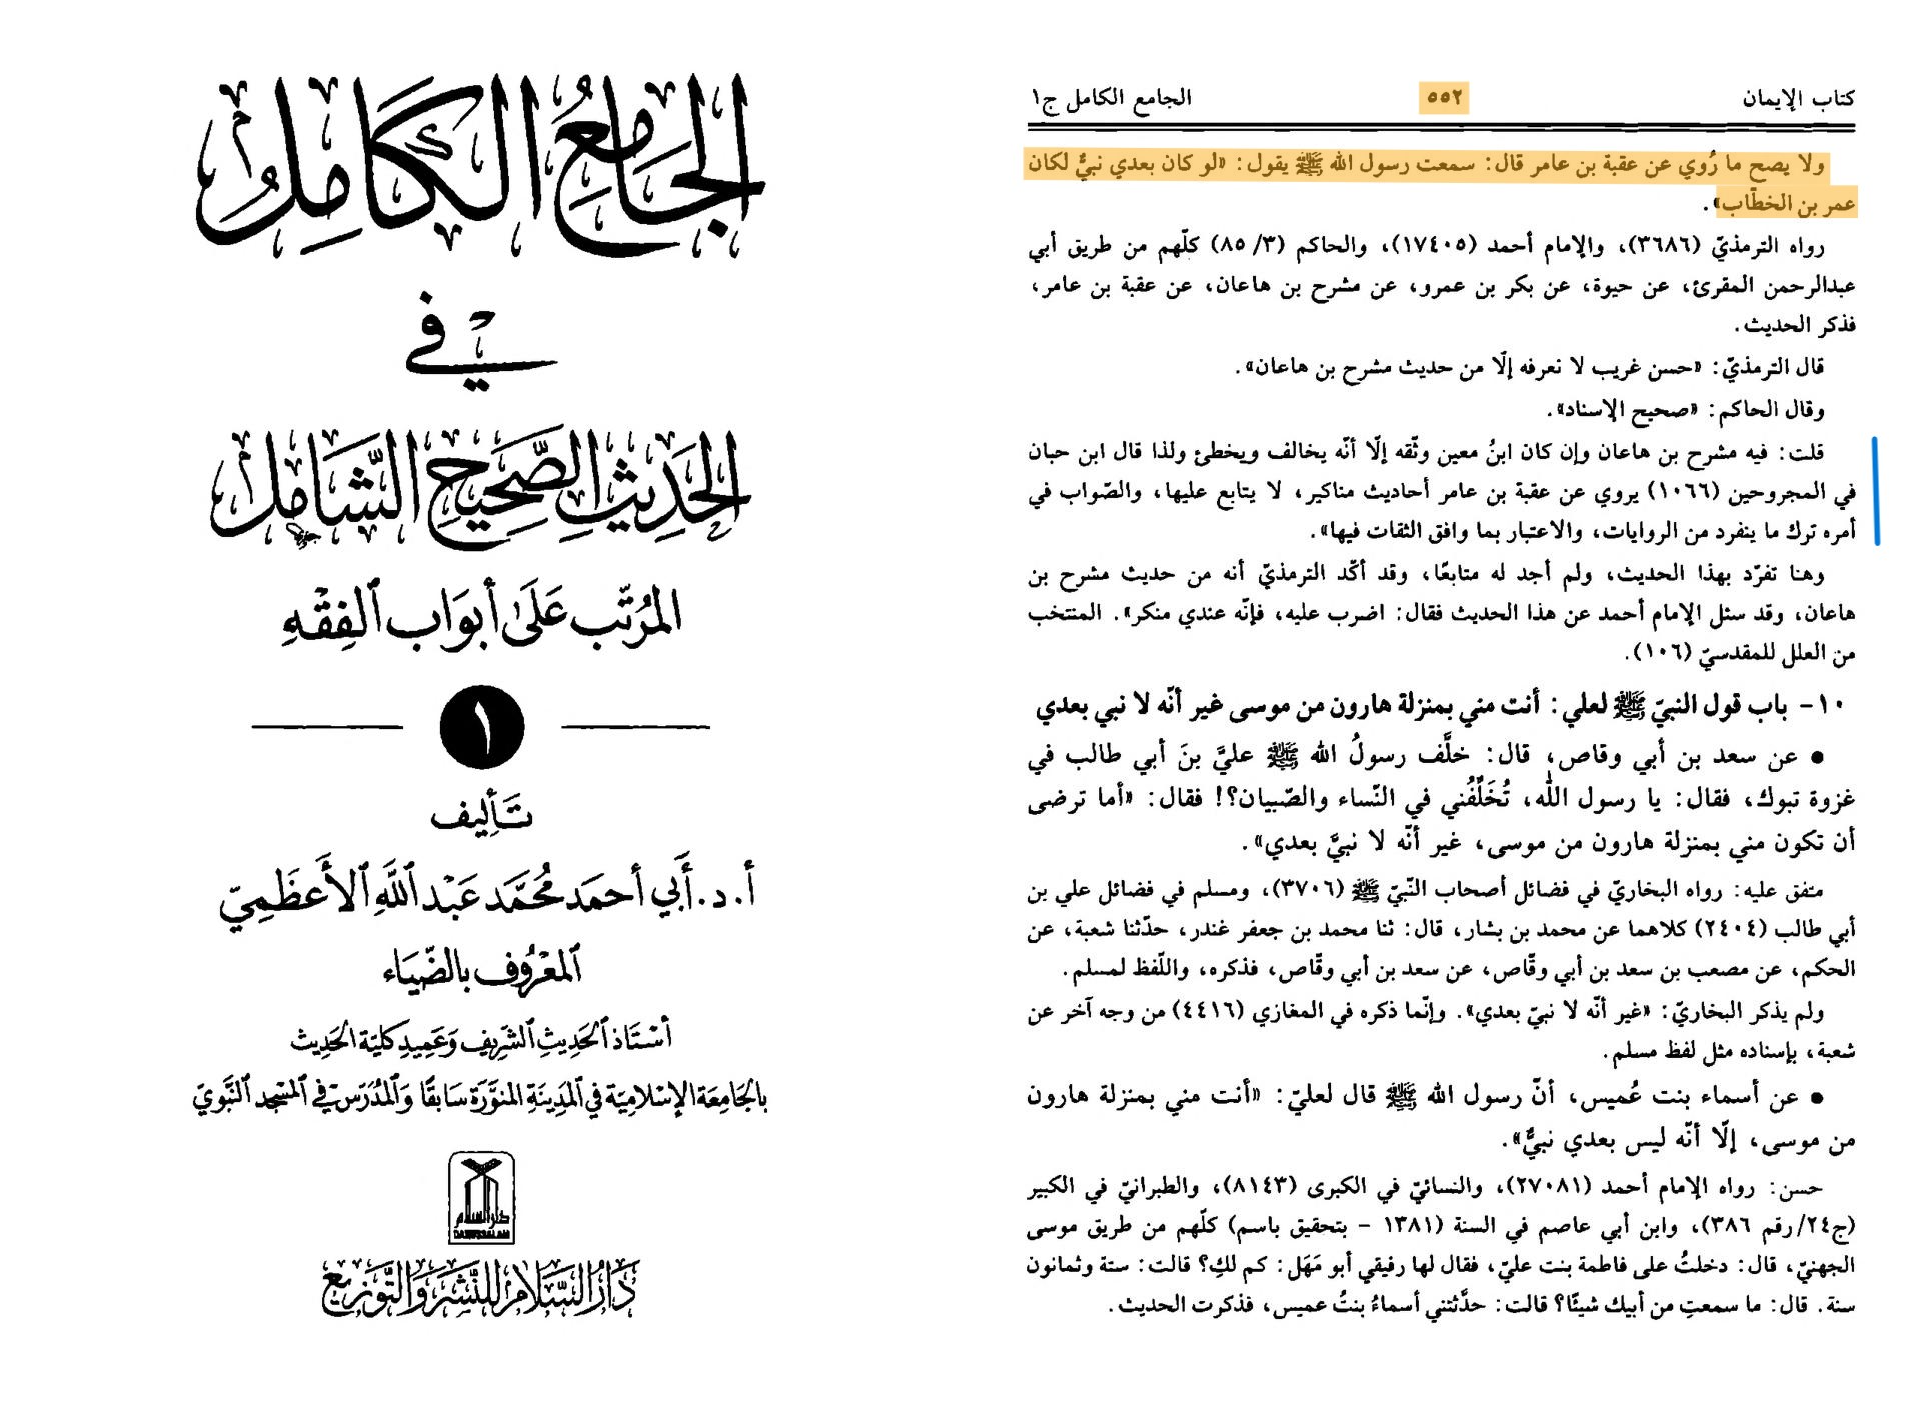 الجامع الكامل
في
الحَدِيثِ الصَّحِيحِ الشَّامِل
المُرَتّب عَلَى أبوَاب الفِقْهِ
١
تَأليف
أ. د. أَبي أحمَد مُحَمَّد عَبْد اللَّهِ الأَعظَمِيّ
المعْرُوف بالضّيَاء
أسْتَاذ الحَدِيثِ الشَّرِيف وَعَمِيد كليّة الحَدِيث
بالجَامِعَة الإسْلاميّة في المَدِينَةِ المنوَّرَة سَابقًا وَالمُدَرّس في المسْجد النَّبَويّ
دار السلام
DARUSSALAM
دَارُ السَّلَام للنَّشر وَالتَّوزيع
كتاب الإيمان ٥٥٢ الجامع الكامل ج١
ولا يصح ما رُوي عن عقبة بن عامر قال: سمعت رسول الله ﷺ يقول: «لو كان بعدي نبيٌّ لكان
عمر بن الخطّاب».
رواه الترمذيّ (٣٦٨٦)، والإمام أحمد (١٧٤٠٥)، والحاكم (٣/ ٨٥) كلّهم من طريق أبي
عبدالرحمن المقرئ، عن حيوة، عن بكر بن عمرو، عن مشرح بن هاعان، عن عقبة بن عامر،
فذكر الحديث.
قال الترمذيّ: «حسن غريب لا نعرفه إلّا من حديث مشرح بن هاعان».
وقال الحاكم: «صحيح الإسناد».
قلت: فيه مشرح بن هاعان وإن كان ابنُ معين وثّقه إلّا أنّه يخالف ويخطئ ولذا قال ابن حبان
في المجروحين (١٠٦٦) يروي عن عقبة بن عامر أحاديث مناكير، لا يتابع عليها، والصّواب في
أمره ترك ما ينفرد من الروايات، والاعتبار بما وافق الثقات فيها».
وهنا تفرّد بهذا الحديث، ولم أجد له متابعًا، وقد أكّد الترمذيّ أنه من حديث مشرح بن
هاعان، وقد سئل الإمام أحمد عن هذا الحديث فقال: اضرب عليه، فإنّه عندي منكر». المنتخب
من العلل للمقدسيّ (١٠٦).
١٠- باب قول النبيّ ﷺ لعلي: أنت مني بمنزلة هارون من موسى غير أنّه لا نبي بعدي
• عن سعد بن أبي وقاص، قال: خلَّف رسولُ الله ﷺ عليَّ بنَ أبي طالب في
غزوة تبوك، فقال: يا رسول اللّه، تُخَلِّفُني في النّساء والصّبيان؟! فقال: «أما ترضى
أن تكون مني بمنزلة هارون من موسى، غير أنّه لا نبيَّ بعدي».
متفق عليه: رواه البخاريّ في فضائل أصحاب النّبيّ ﷺ (٣٧٠٦)، ومسلم في فضائل علي بن
أبي طالب (٢٤٠٤) كلاهما عن محمد بن بشار، قال: ثنا محمد بن جعفر غندر، حدّثنا شعبة، عن
الحكم، عن مصعب بن سعد بن أبي وقّاص، عن سعد بن أبي وقّاص، فذكره، واللّفظ لمسلم.
ولم يذكر البخاريّ: «غير أنّه لا نبيّ بعدي». وإنّما ذكره في المغازي (٤٤١٦) من وجه آخر عن
شعبة، بإسناده مثل لفظ مسلم.
• عن أسماء بنت عُميس، أنّ رسول الله ﷺ قال لعليّ: «أنت مني بمنزلة هارون
من موسى، إلّا أنّه ليس بعدي نبيٌّ».
حسن: رواه الإمام أحمد (٢٧٠٨١)، والنسائيّ في الكبرى (٨١٤٣)، والطبرانيّ في الكبير
(ج٢٤/ رقم ٣٨٦)، وابن أبي عاصم في السنة (١٣٨١ - بتحقيق باسم) كلّهم من طريق موسى
الجهنيّ، قال: دخلتُ على فاطمة بنت عليّ، فقال لها رفيقي أبو مَهَل: كم لكِ؟ قالت: ستة وثمانون
سنة. قال: ما سمعتِ من أبيك شيئًا؟ قالت: حدَّثتني أسماءُ بنتُ عميس، فذكرت الحديث.